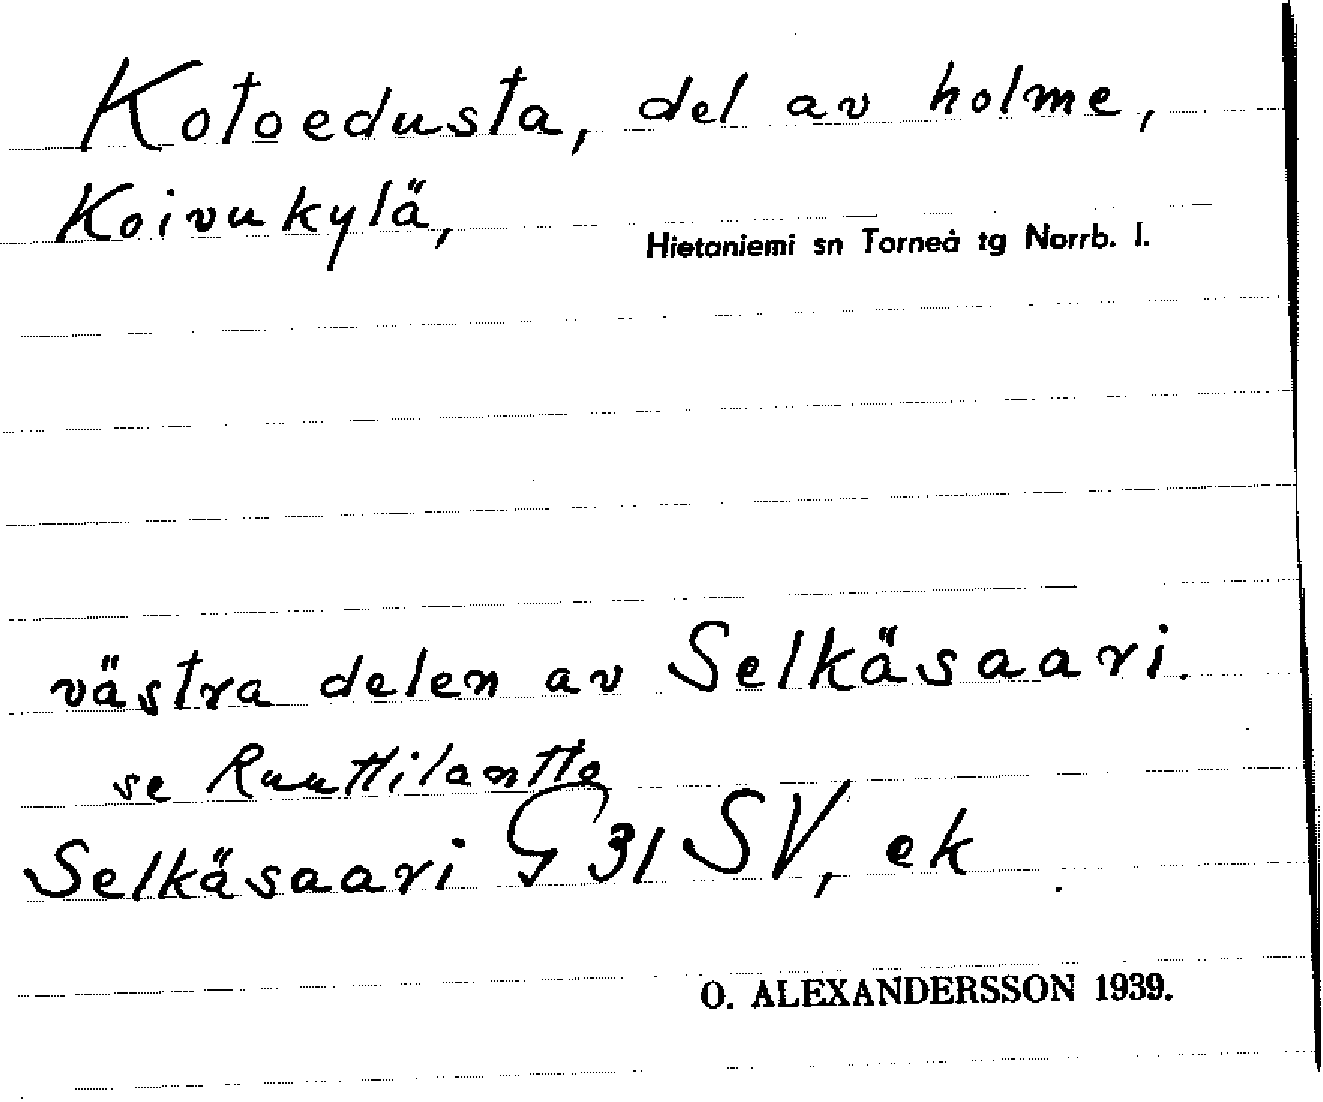 Kotoedusta, del av holme,
Koivukylä,
Hietaniemi sn Torneå tg Norrb. l.
västra delen av Selkäsaari.
se Ruuttilantto
Selkäsaari G 31 SV, ek
O. ALEXANDERSSON 1939.